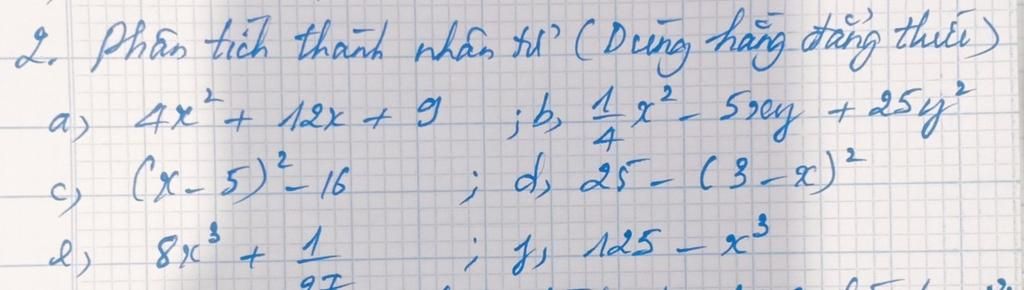 2. Phân tích thành nhân tử (Dùng hằng đẳng thức)
a) 4x² + 12x + 9 ; b, 1/4 x² - 5xy + 25y²
c) (x - 5)² - 16 ; d, 25 - (3 - x)²
e) 8x³ + 1/27 ; f, 125 - x³